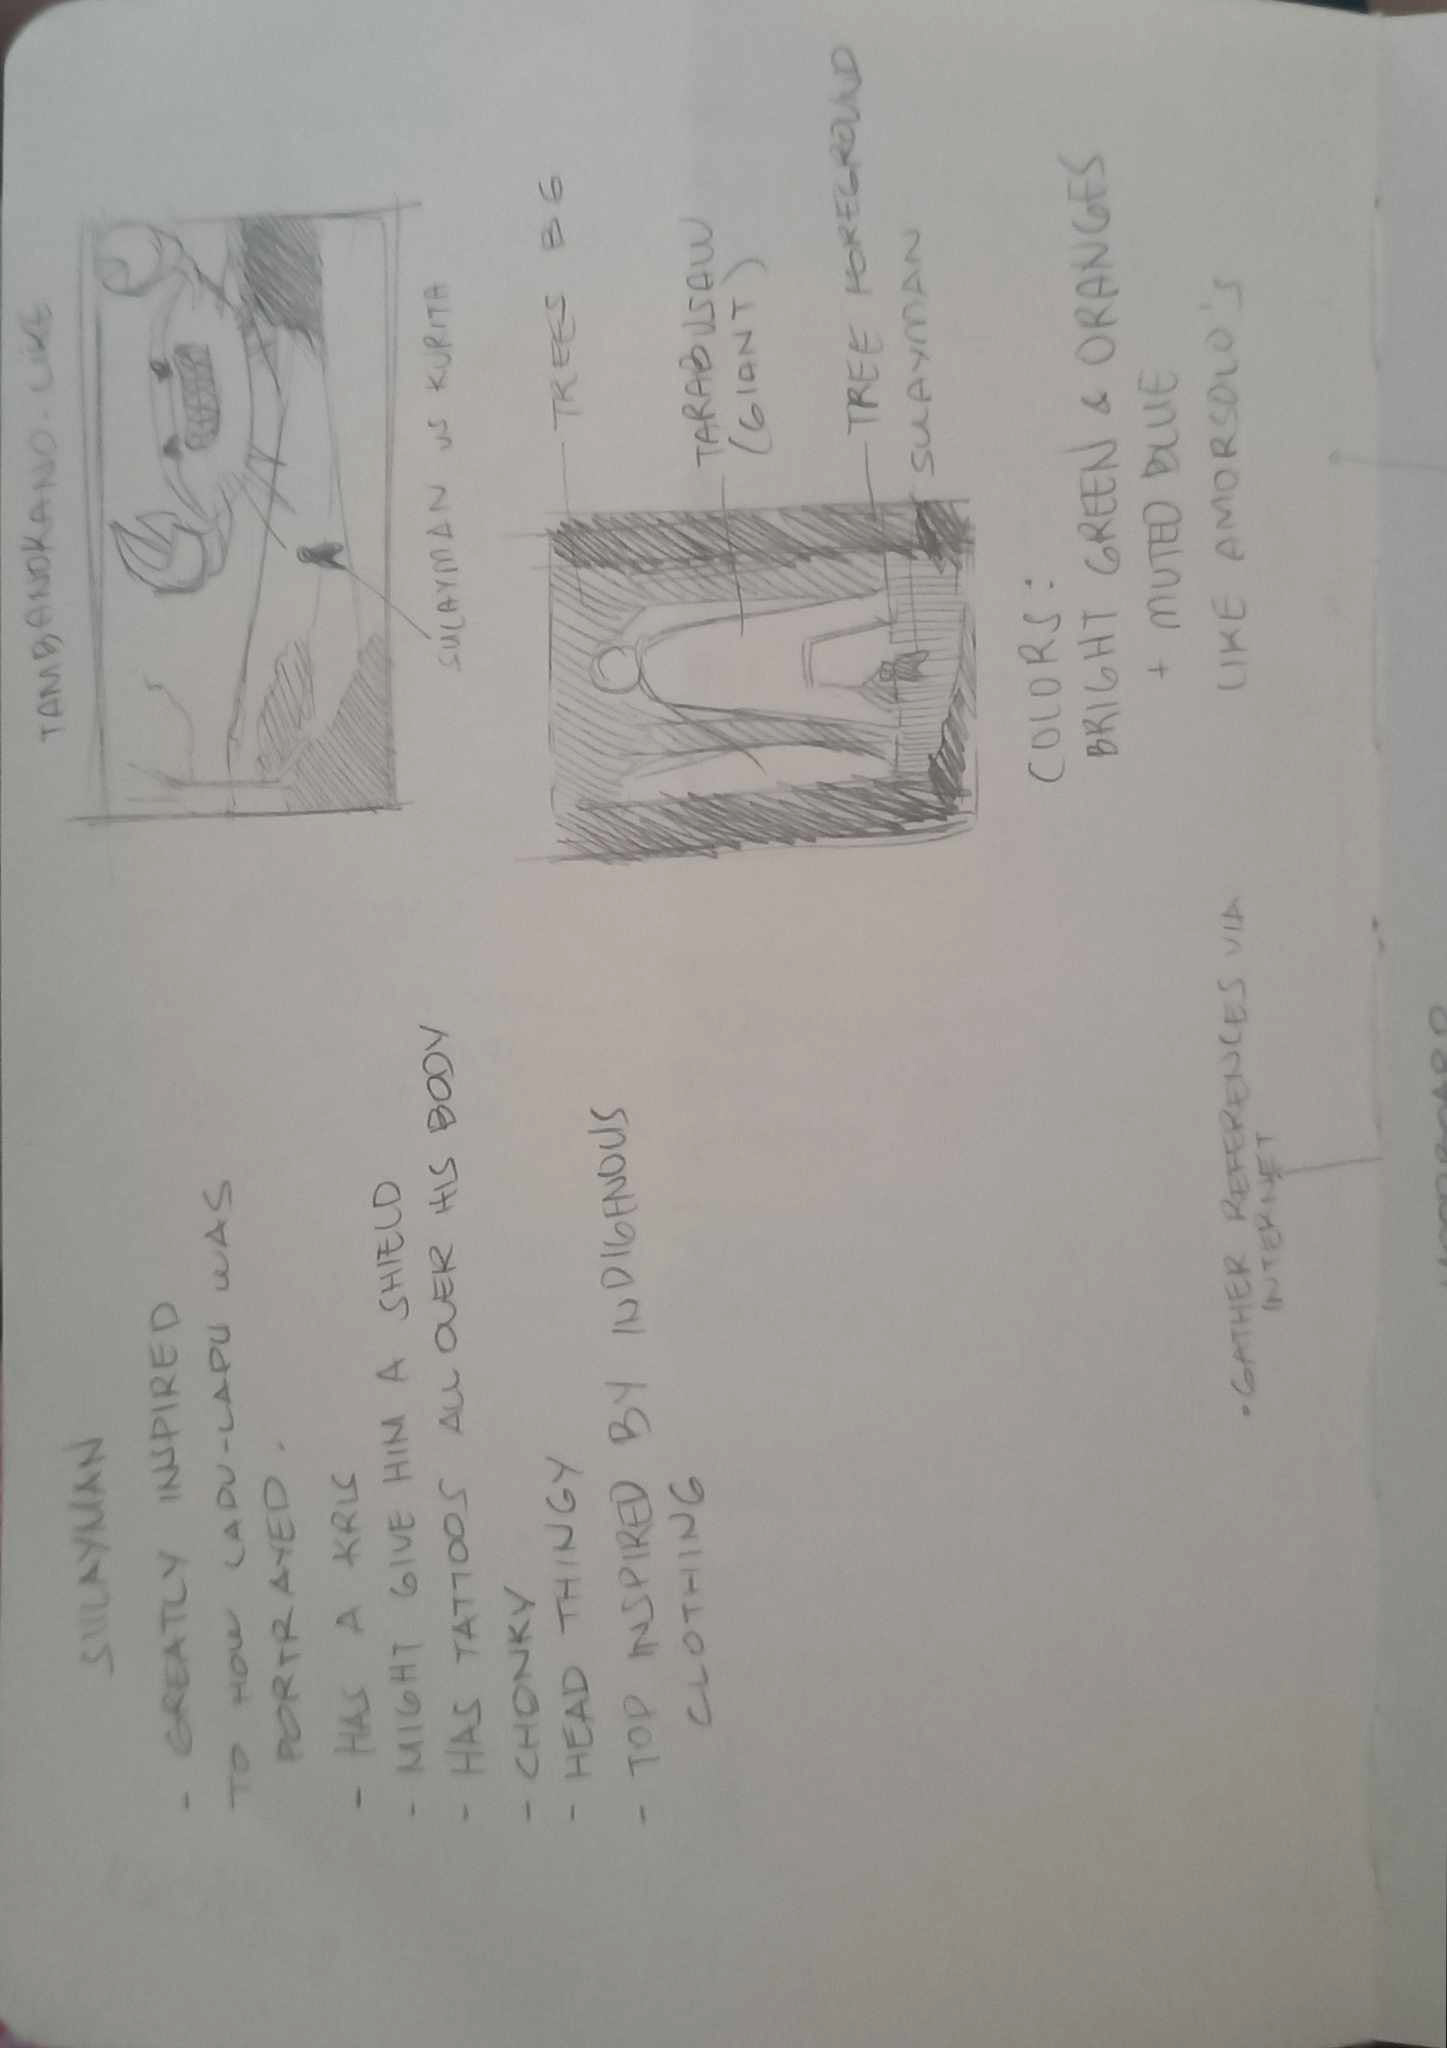 SULAYMAN
- GREATLY INSPIRED
TO HOW LAPU-LAPU WAS
PORTRAYED.
- HAS A KRIS
- MIGHT GIVE HIM A SHIELD
- HAS TATTOOS ALL OVER HIS BODY
- CHONKY
- HEAD THINGY
- TOP INSPIRED BY INDIGENOUS
CLOTHING
• GATHER REFERENCES VIA
INTERNET
TAMBANOKANO-LIKE
SULAYMAN VS KURITA
TREES BG
TARABUSAW
(GIANT)
TREE FOREGROUND
SULAYMAN
COLORS:
BRIGHT GREEN & ORANGES
+ MUTED BLUE
LIKE AMORSOLO'S